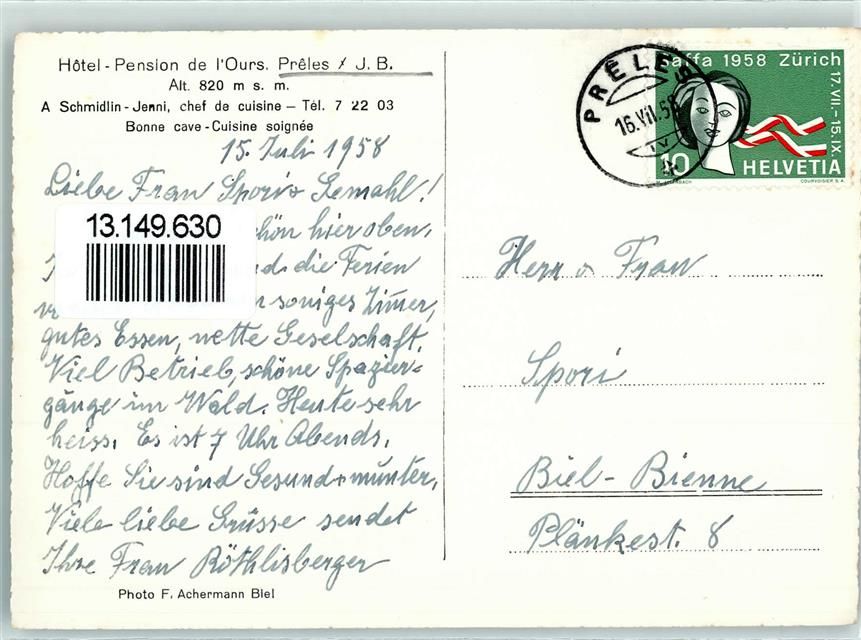 Hôtel - Pension de l'Ours. Prêles / J. B.
Alt. 820 m s. m.
A Schmidlin - Jenni, chef de cuisine – Tél. 7 22 03
Bonne cave - Cuisine soignée
15. Juli 1958
Liebe Frau Spori + Gemahl!
hön hier oben,
13.149.630
nd die Ferien
soniges Zimer,
gutes Essen, nette Geselschaft.
Viel Betrieb, schöne Spazier=
gänge im Wald. Heute sehr
heiss. Es ist 7 Uhr Abends.
Hoffe Sie sind Gesund + munter,
Viele liebe Grüsse sendet
Ihre Frau Röthlisberger
Photo F. Achermann Biel
PRÊLES
16.VII.58
Saffa 1958 Zürich
17.VII.–15.IX.
10 HELVETIA
COURVOISIER S.A.
Herr u Frau
Spori
Biel - Bienne
Plänkest. 8